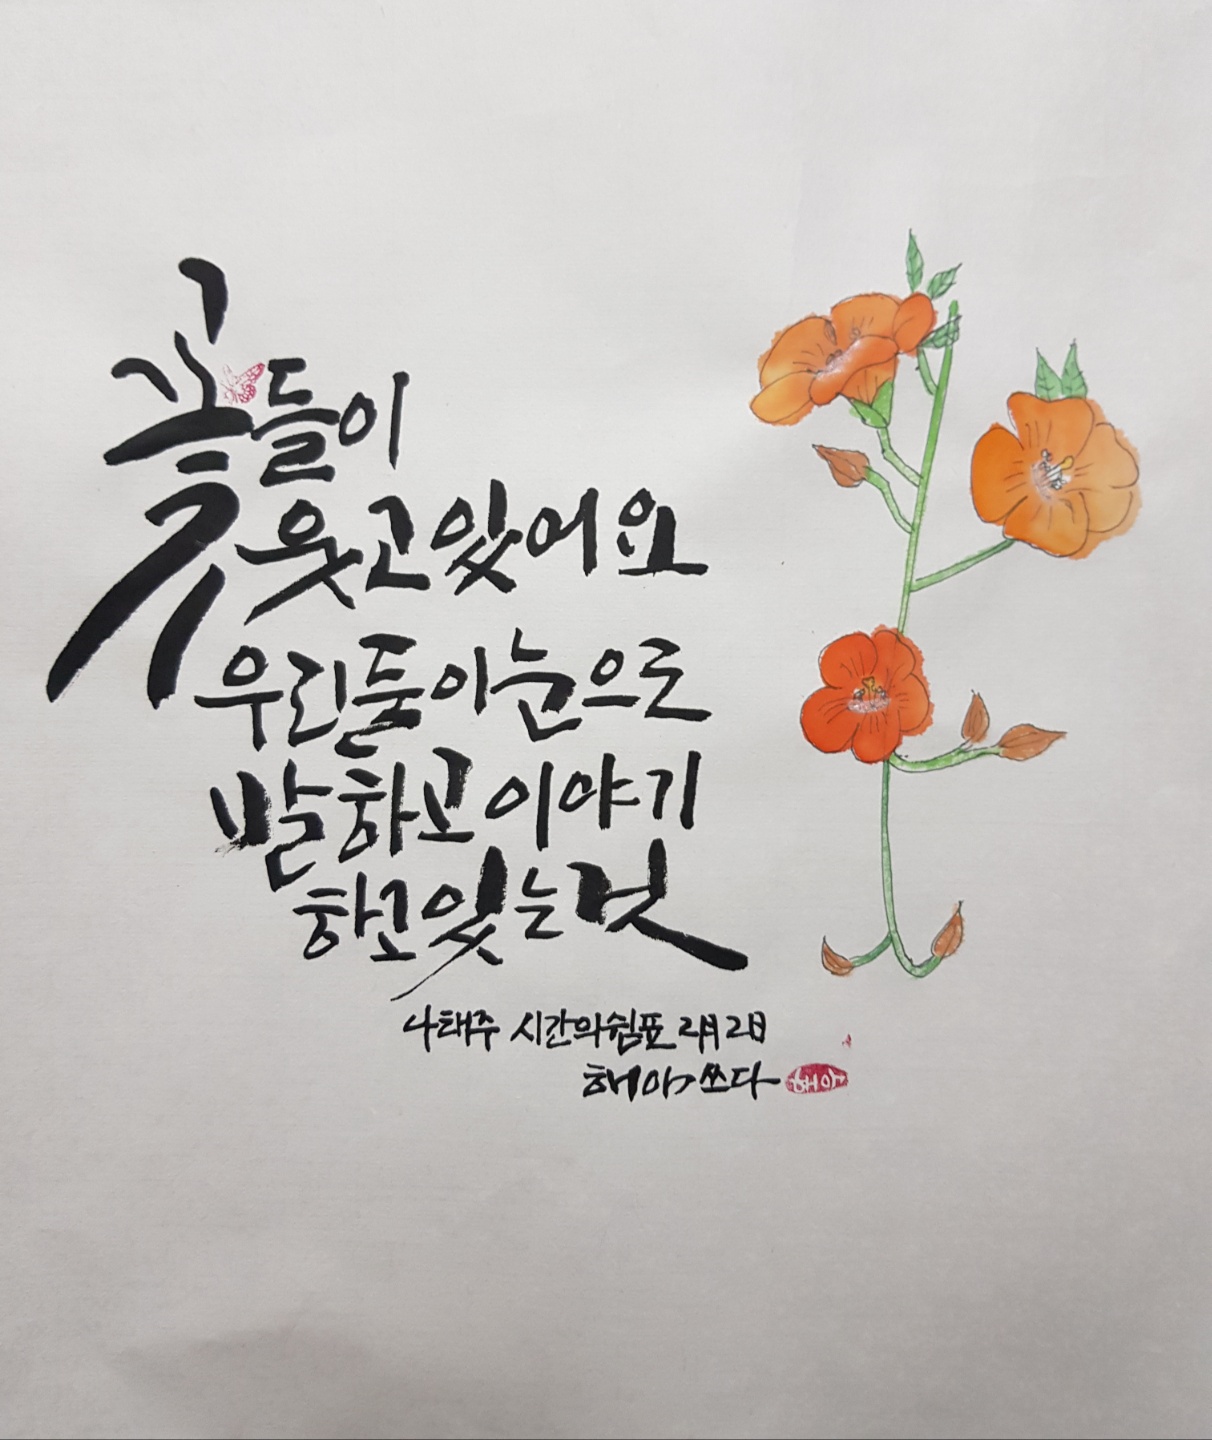 꽃들이
웃고있어요
우리둘이눈으로
말하고이야기
하고있는것
나태주 시간의쉼표 2月2日
해야쓰다
해야